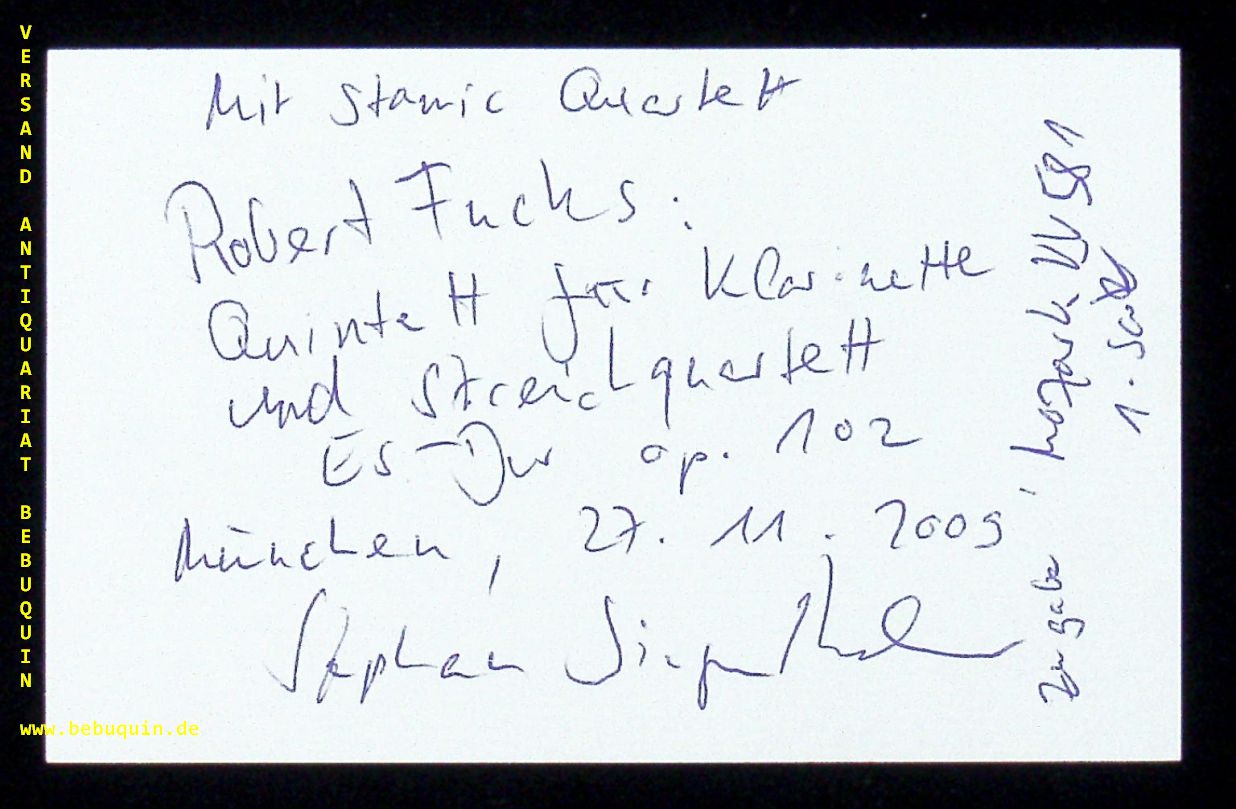 VERSAND ANTIQUARIAT BEBUQUIN
www.bebuquin.de
Mit Stamic Quartett
Robert Fuchs:
Quintett für Klarinette
und Streichquartett
Es-Dur op. 102
München, 27. 11. 2009
Stephan Siegenthaler
Zugabe: Mozart KV 581
1. Satz